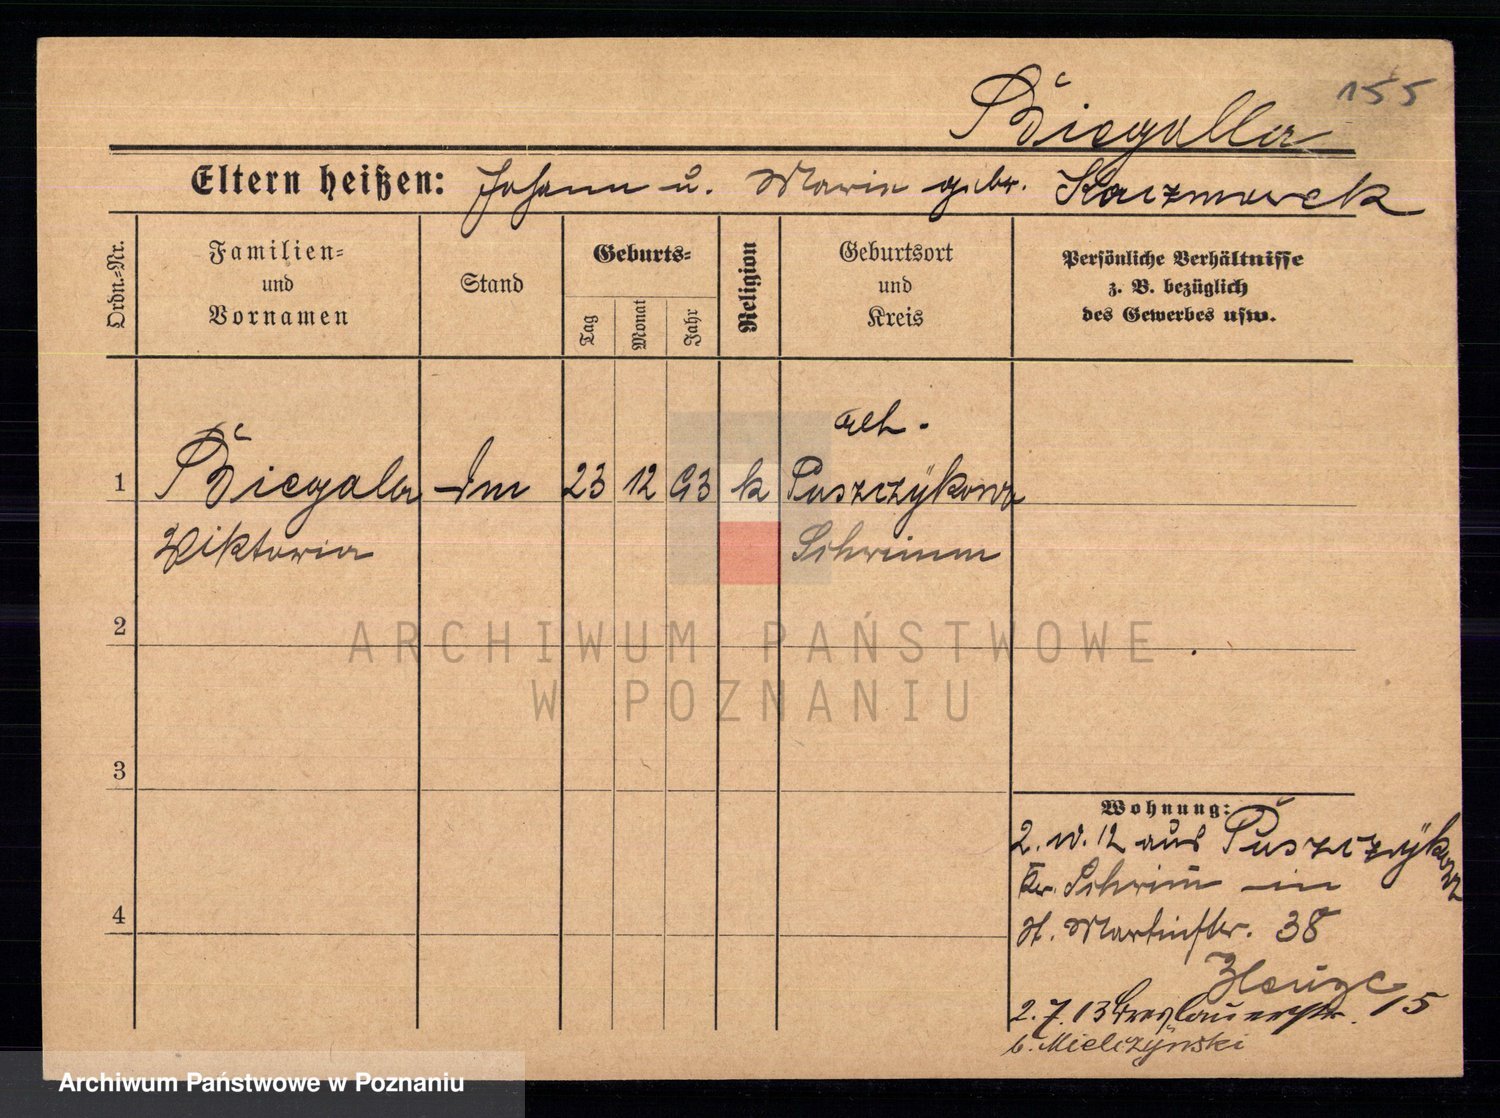 155
Biegalla
Eltern heißen: Johann u. Marie gebr. Kaczmarek
Ordn.=Nr.
Familien=
und
Vornamen
Stand
Geburts=
Tag
Monat
Jahr
Religion
Geburtsort
und
Kreis
Persönliche Verhältnisse
z. B. bezüglich
des Gewerbes usw.
1
Biegala
Viktoria
23 12 93 k
Puszczÿkowo
Schrimm
2
3
4
Wohnung:
2. 10. 12 aus Puszczÿkowo
Kr. Schrim in
St. Martinstr. 38
2. 7. 13 Breslauerstr. 15
b. Mielczÿnski
ARCHIWUM PAŃSTWOWE
W POZNANIU
Archiwum Państwowe w Poznaniu